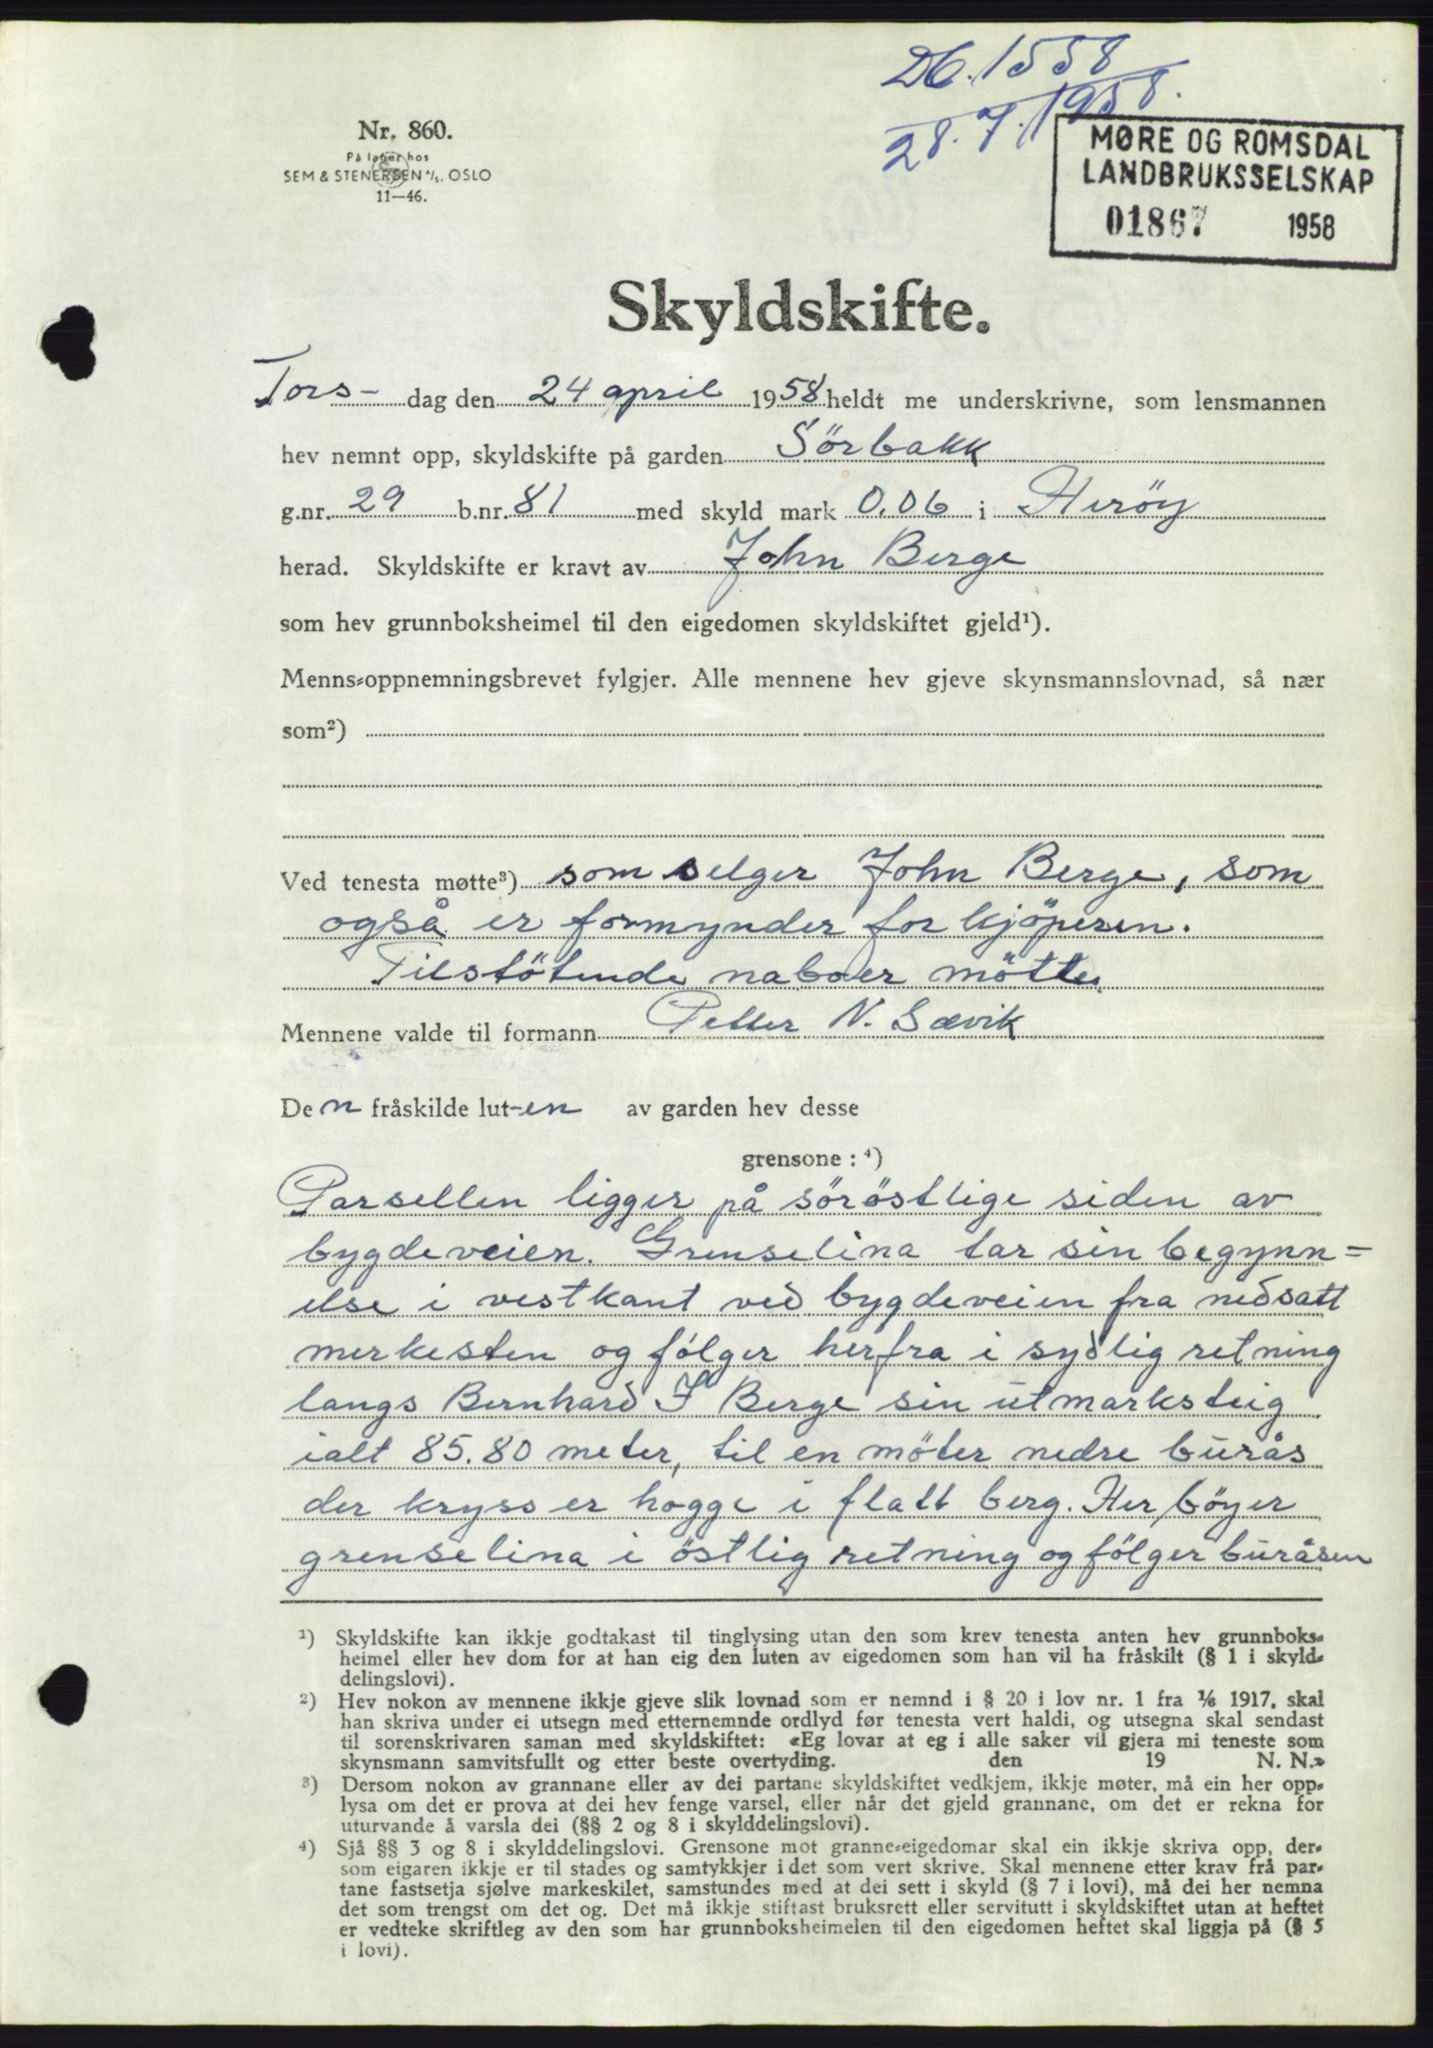 Db. 1558
28.7.1958.
Nr. 860.
På lager hos
SEM & STENERSEN A/S. OSLO
11—46.
MØRE OG ROMSDAL
LANDBRUKSSELSKAP
01867 1958
Skyldskifte.
Tors- dag den 24 april 1958 heldt me underskrivne, som lensmannen
hev nemnt opp, skyldskifte på garden Sörbakk
g.nr. 29 b.nr. 81 med skyld mark 0.06 i Heröy
herad. Skyldskifte er kravt av John Berge
som hev grunnboksheimel til den eigedomen skyldskiftet gjeld¹).
Menns-oppnemningsbrevet fylgjer. Alle mennene hev gjeve skynsmannslovnad, så nær
som²)
Ved tenesta møtte³) som selger John Berge, som
også er formynder for kjöperen.
Tilstötende naboer mötte.
Mennene valde til formann Petter N. Sævik
Den fråskilde lut-en av garden hev desse
grensone : ⁴)
Parsellen ligger på söröstlige siden av
bygdeveien. Grenselina tar sin begynn=
else i vestkant ved bygdeveien fra nedsatt
merkesten og fölger herfra i sydlig retning
langs Bernhard J Berge sin utmarksteig
ialt 85.80 meter, til en möter nedre burås
der kryss er hogge i flatt berg. Her böyer
grenselina i östlig retning og fölger buråsen
¹) Skyldskifte kan ikkje godtakast til tinglysing utan den som krev tenesta anten hev grunnboks-
heimel eller hev dom for at han eig den luten av eigedomen som han vil ha fråskilt (§ 1 i skyld-
delingslovi).
²) Hev nokon av mennene ikkje gjeve slik lovnad som er nemnd i § 20 i lov nr. 1 fra 1/6 1917, skal
han skriva under ei utsegn med etternemnde ordlyd før tenesta vert haldi, og utsegna skal sendast
til sorenskrivaren saman med skyldskiftet: «Eg lovar at eg i alle saker vil gjera mi teneste som
skynsmann samvitsfullt og etter beste overtyding. den 19 N. N.»
³) Dersom nokon av grannane eller av dei partane skyldskiftet vedkjem, ikkje møter, må ein her opp-
lysa om det er prova at dei hev fenge varsel, eller når det gjeld grannane, om det er rekna for
uturvande å varsla dei (§§ 2 og 8 i skylddelingslovi).
⁴) Sjå §§ 3 og 8 i skylddelingslovi. Grensone mot granne-eigedomar skal ein ikkje skriva opp, der-
som eigaren ikkje er til stades og samtykkjer i det som vert skrive. Skal mennene etter krav frå par-
tane fastsetja sjølve markeskilet, samstundes med at dei sett i skyld (§ 7 i lovi), må dei her nemna
det som trengst om det og. Det må ikkje stiftast bruksrett eller servitutt i skyldskiftet utan at heftet
er vedteke skriftleg av den som har grunnboksheimelen til den eigedomen heftet skal liggja på (§ 5
i lovi).